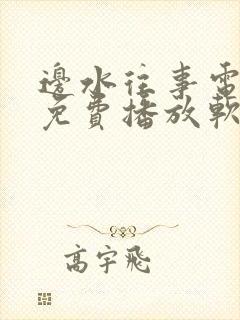 邊水往事電
免費播放軟
高宇飛